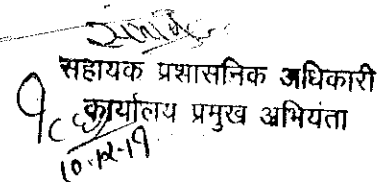 सहायक प्रशासनिक अधिकारी
कार्यालय प्रमुख अभियंता
10-12-19